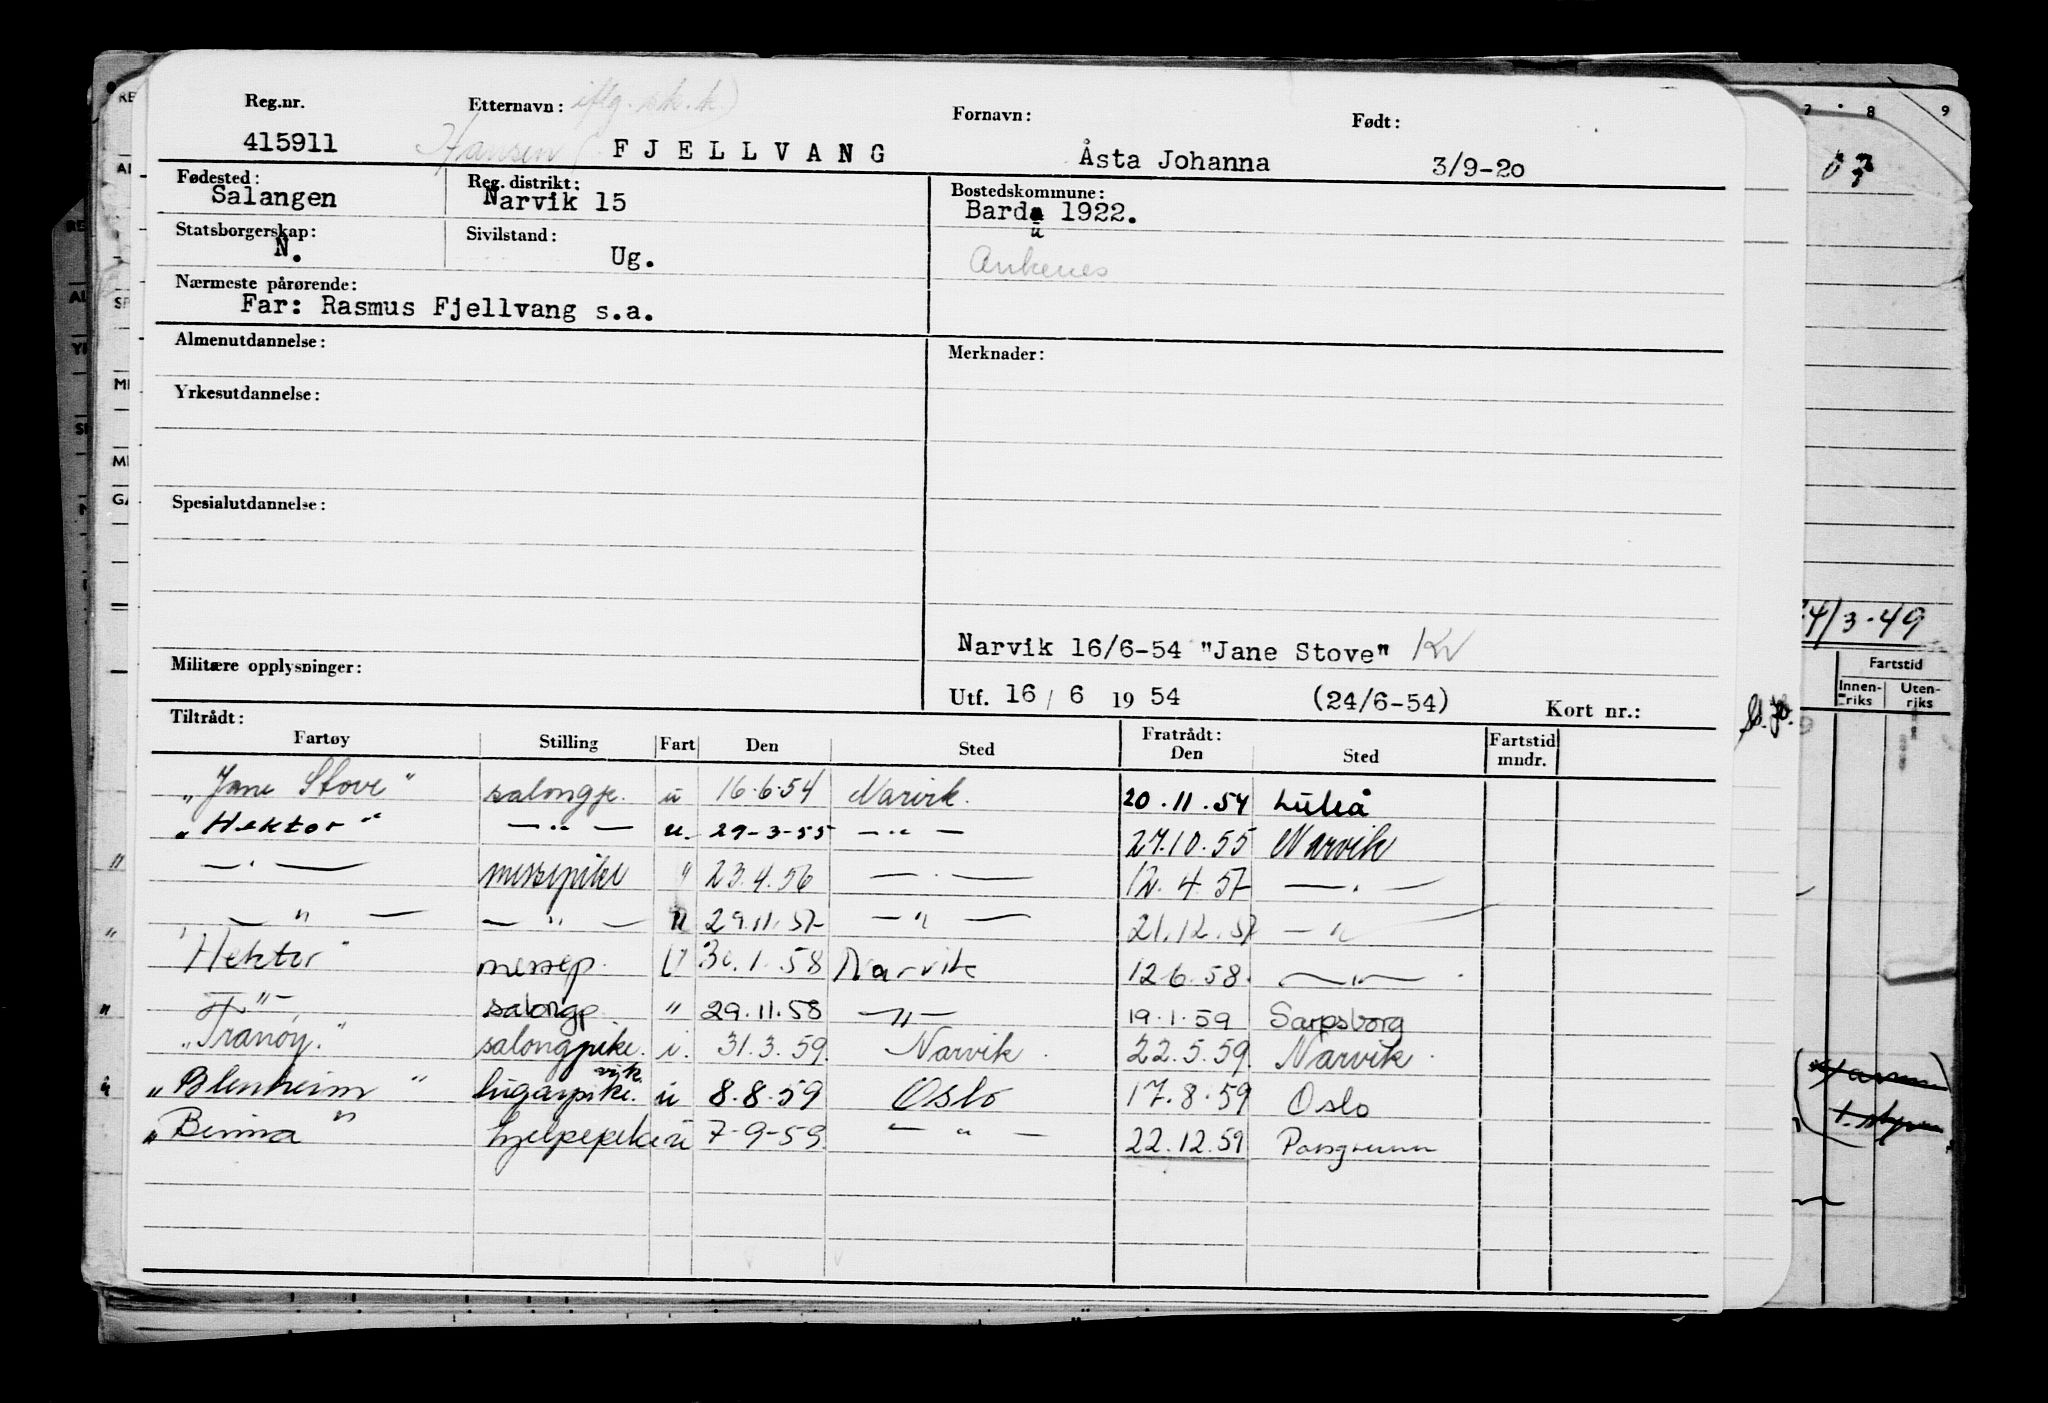 Reg.nr. Etternavn: iflg. sk. k.) Fornavn: Født:
415911 Hansen ( FJELLVANG Åsta Johanna 3/9-20
Fødested: Reg. distrikt: Bostedskommune:
Salangen Narvik 15 Bardu 1922.
Statsborgerskap: Sivilstand:
N. Ug. Ankenes
Nærmeste pårørende:
Far: Rasmus Fjellvang s.a.
Almenutdannelse: Merknader:
Yrkesutdannelse:
Spesialutdannelse:
Narvik 16/6-54 "Jane Stove" Kv
Militære opplysninger:
Utf. 16 / 6 19 54 (24/6-54) Kort nr.:
Tiltrådt: Fratrådt:
Fartøy Stilling Fart Den Sted Den Sted Fartstid mndr.
"Jane Stove" salongp. u 16.6.54 Narvik. 20.11.54 Luleå
"Hektor" — " — u. 29-3-55 — " — 27.10.55 Narvik
— " — messepike " 23.4.56 — " — 12.4.57 — " —
— " — — " — u 29.11.57 — " — 21.12.57 — "
"Hektor" messep. U 30.1.58 Narvik 12.6.58. — " —
— " — salongp " 29.11.58 — " — 19.1.59 Sarpsborg
"Tranøy." salongpike. i. 31.3.59. Narvik. 22.5.59. Narvik.
"Blenheim" lugarpike. vik. u 8.8.59 Oslo 17.8.59 Oslo
"Binna" hjelpepike u 7-9-59. — " — 22.12.59 Porsgrunn
7 8 9
4/3-49
Fartstid
Innen-riks Uten-riks